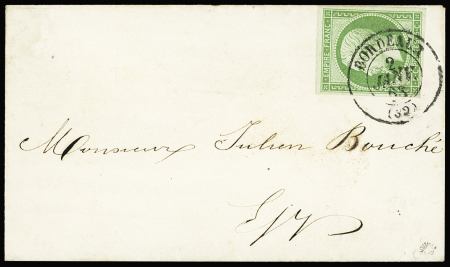 EMPIRE FRANC
BORDEAUX
2
JANV
(32)
Monsieur Julien Bouché